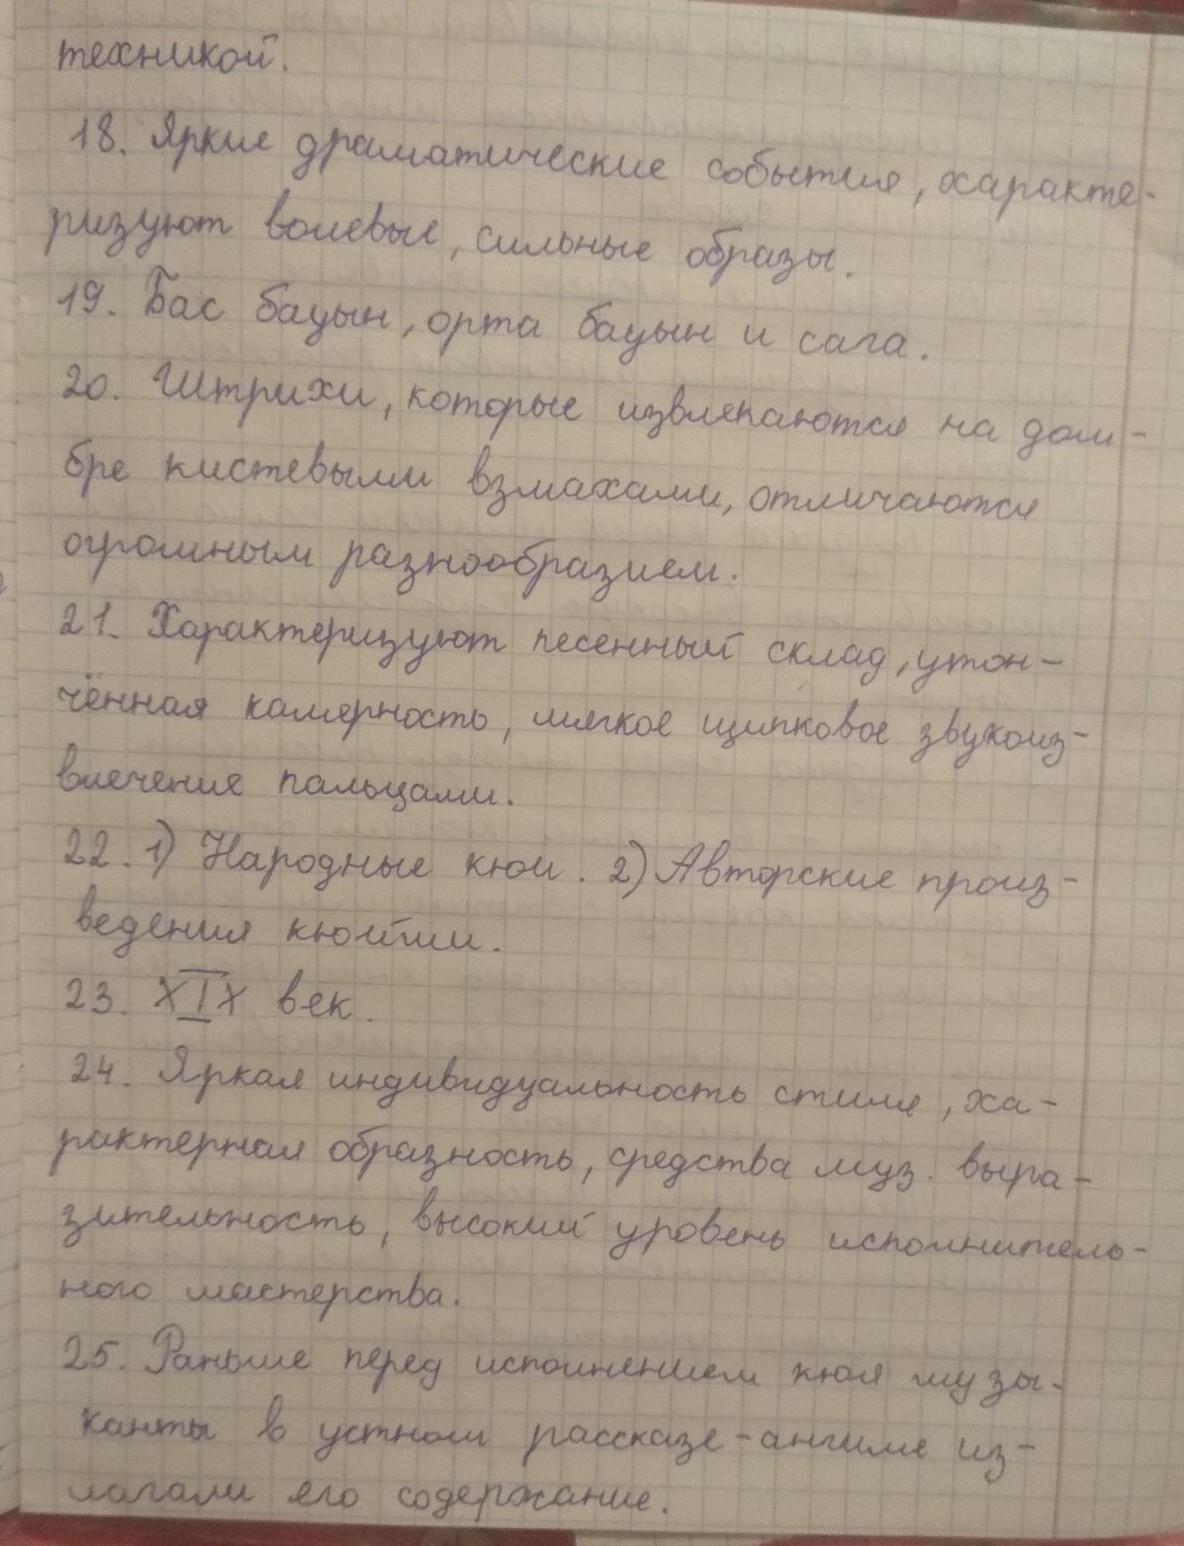 техникой.
18. Яркие драматические события, характе-
ризуют волевые, сильные образы.
19. Бас бауын, орта бауын и сага.
20. Штрихи, которые извлекаются на дом-
бре кистевыми взмахами, отличаются
огромным разнообразием.
21. Характеризуют песенный склад, утон-
чённая камерность, мягкое щипковое звукоиз-
влечение пальцами.
22. 1) Народные кюи. 2) Авторские произ-
ведения кюйши.
23. XIX век.
24. Яркая индивидуальность стиля, ха-
рактерная образность, средства муз. выра-
зительность, высокий уровень исполнитель-
ного мастерства.
25. Раньше перед исполнением кюя музы-
канты в устном рассказе-ангиме из-
лагали его содержание.